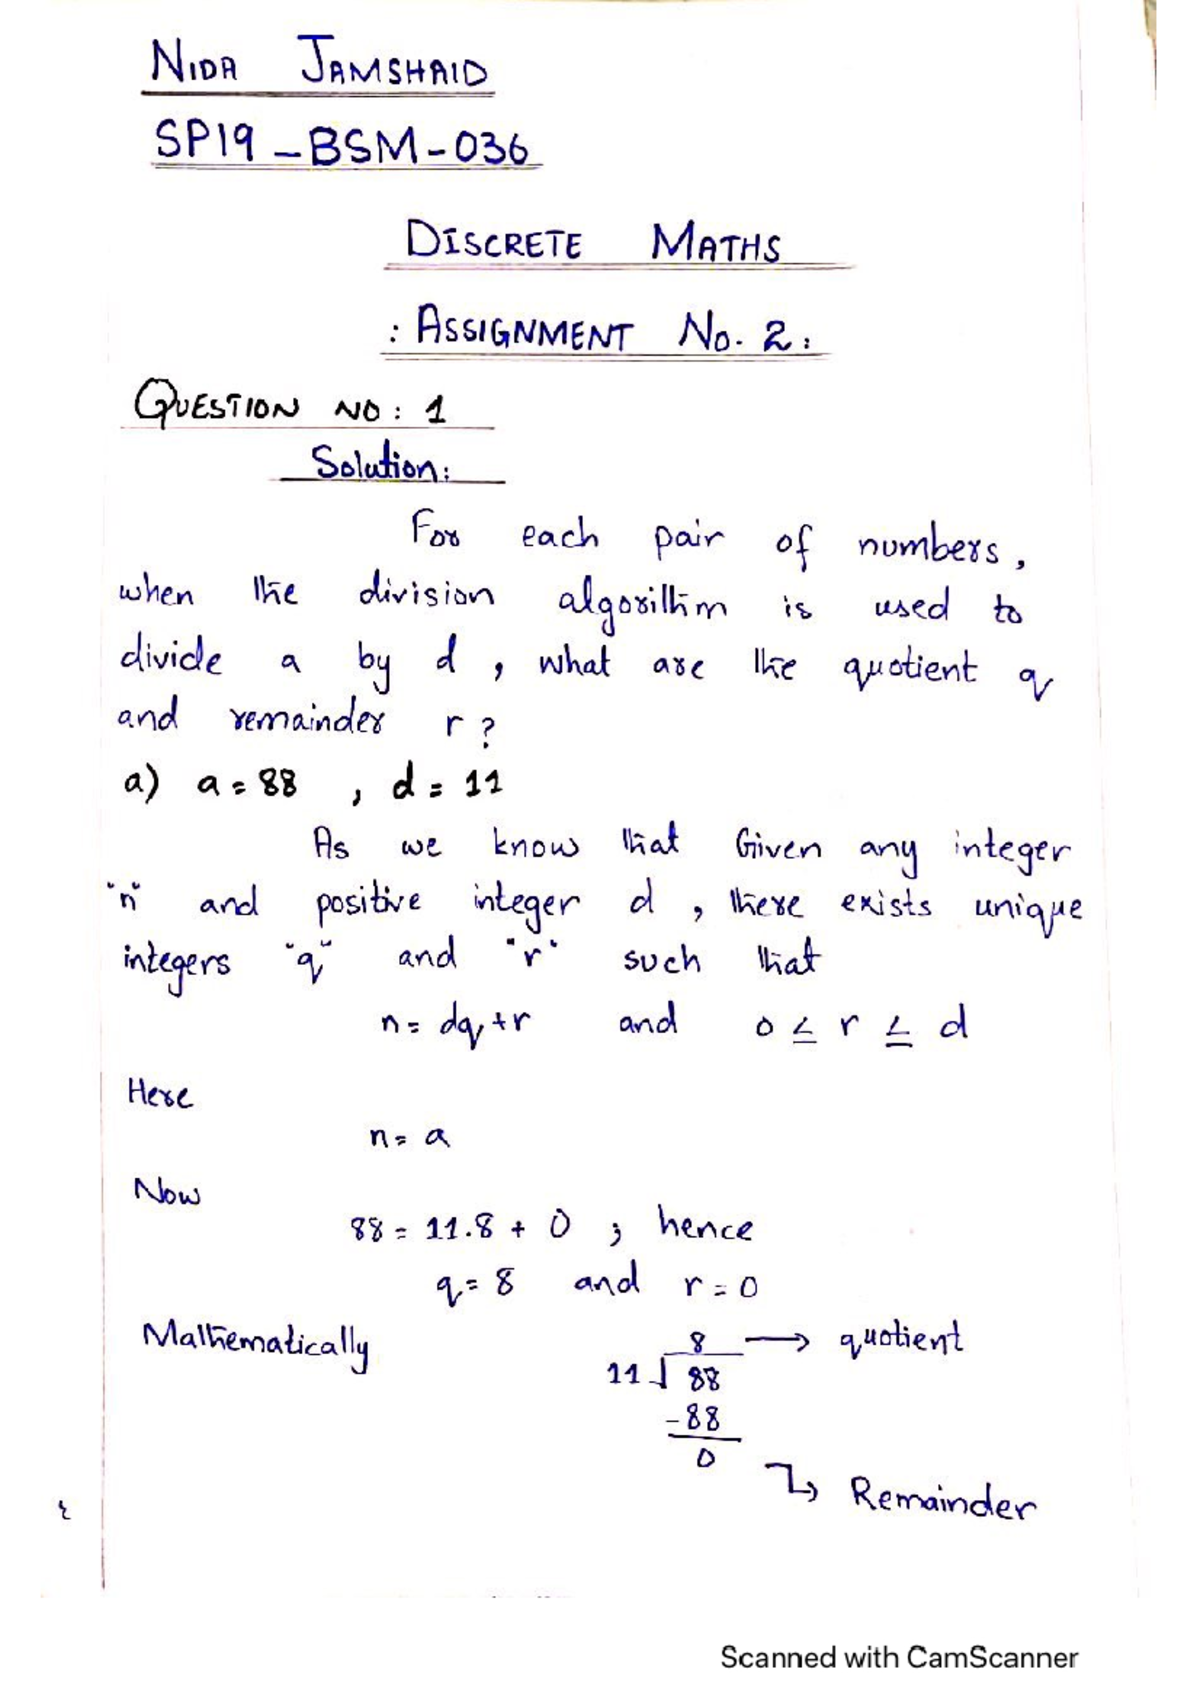 NIDA JAMSHAID
SP19-BSM-036
DISCRETE MATHS
: ASSIGNMENT No. 2 :
QUESTION NO: 1
Solution:
For each pair of numbers,
when the division algorithm is used to
divide a by d, what are the quotient q
and remainder r?
a) a = 88 , d = 11
As we know that Given any integer
"n" and positive integer d, there exists unique
integers "q" and "r" such that
n = dq + r and 0 ≤ r ≤ d
Here
n = a
Now
88 = 11.8 + 0 ; hence
q = 8 and r = 0
Mathematically 8 → quotient
11 √ 88
-88
0
↳ Remainder
Scanned with CamScanner